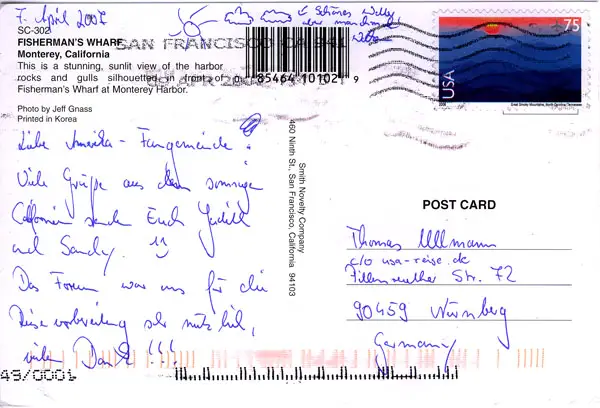 7. April 2007
SC-302
FISHERMAN'S WHARF
Monterey, California
This is a stunning, sunlit view of the harbor
rocks and gulls silhouetted in front of
Fisherman's Wharf at Monterey Harbor.
Photo by Jeff Gnass
Printed in Korea
SAN FRANCISCO CA 941
85464 10102 9
Schönes
75
USA
2006
Great Smoky Mountains, North Carolina/Tennessee
Liebe Amerika-Fangemeinde:
Viele Grüße aus dem sonnigen
Californien senden Euch Judith
und Sandy.
Das Forum war uns für die
Reisevorbereitung sehr nützlich,
vielen Dank!!!
Smith Novelty Company
460 Ninth St., San Francisco, California 94103
POST CARD
Thomas Ullmann
c/o usa-reise.de
Pillenreuther Str. 72
90459 Nürnberg
Germany
49/0001